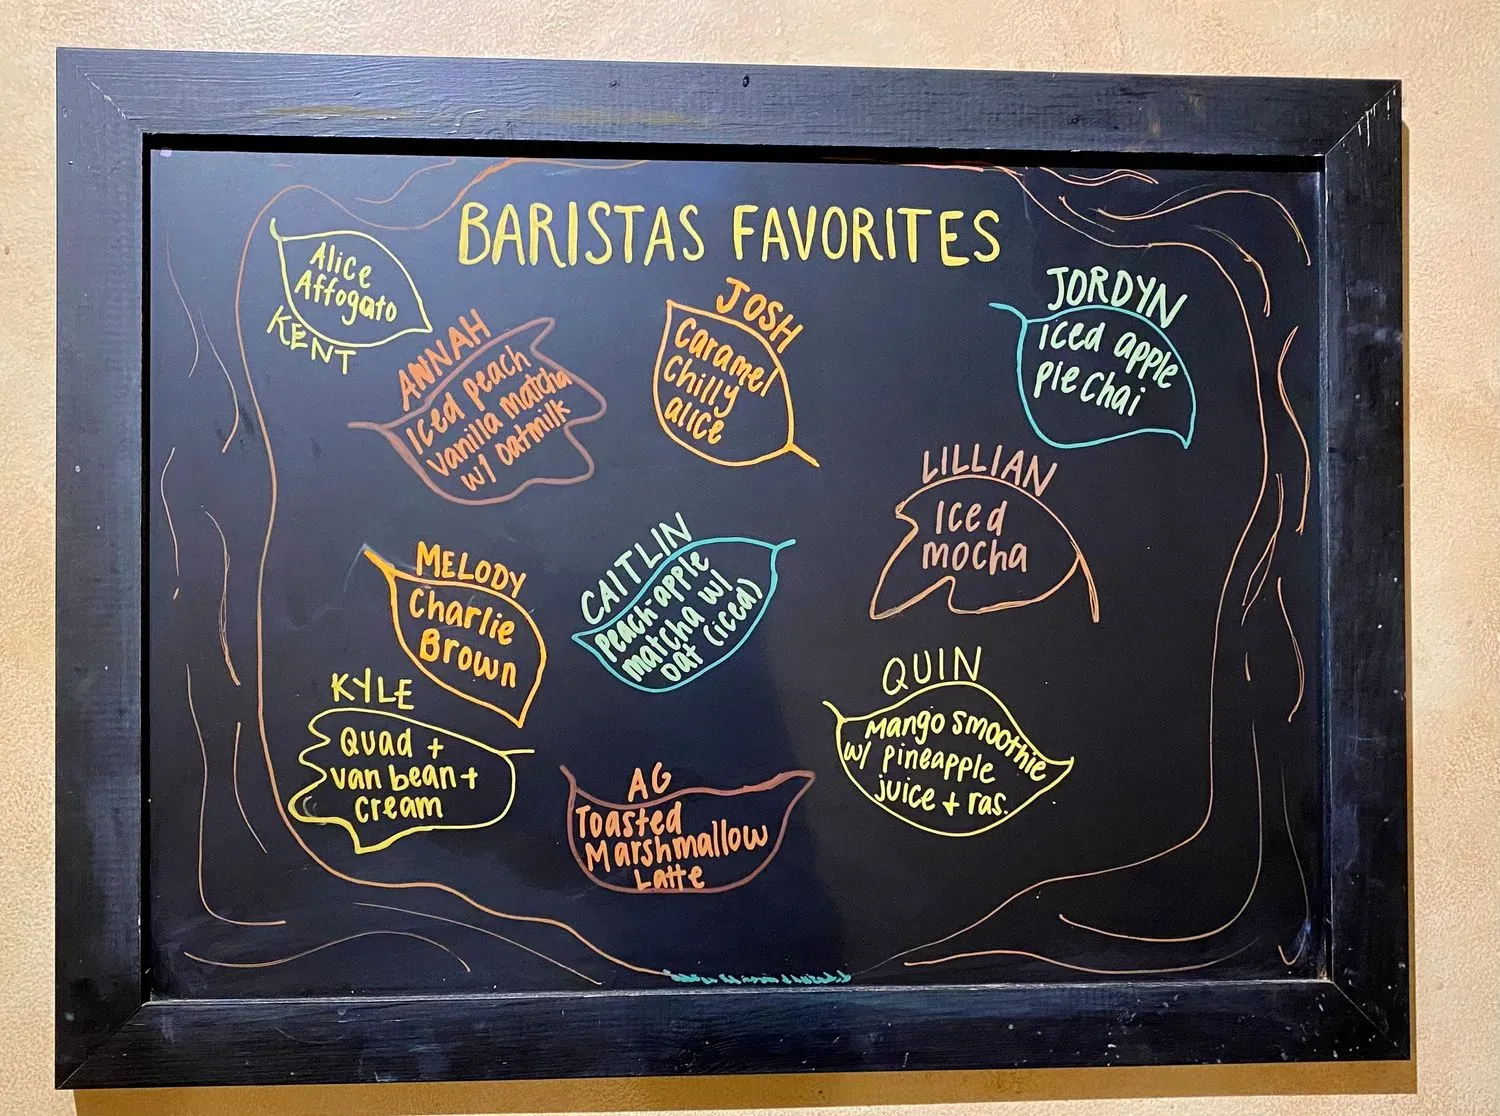 BARISTAS FAVORITES
Alice
Affogato
KENT
ANNAH
Iced peach
vanilla matcha
w/ oatmilk
JOSH
Caramel
Chilly
alice
JORDYN
Iced apple
pie chai
LILLIAN
Iced
mocha
MELODY
Charlie
Brown
CAITLIN
Peach-apple
matcha w/
oat (iced)
KYLE
Quad +
van bean +
cream
AG
Toasted
Marshmallow
Latte
QUIN
Mango smoothie
w/ pineapple
juice + ras.